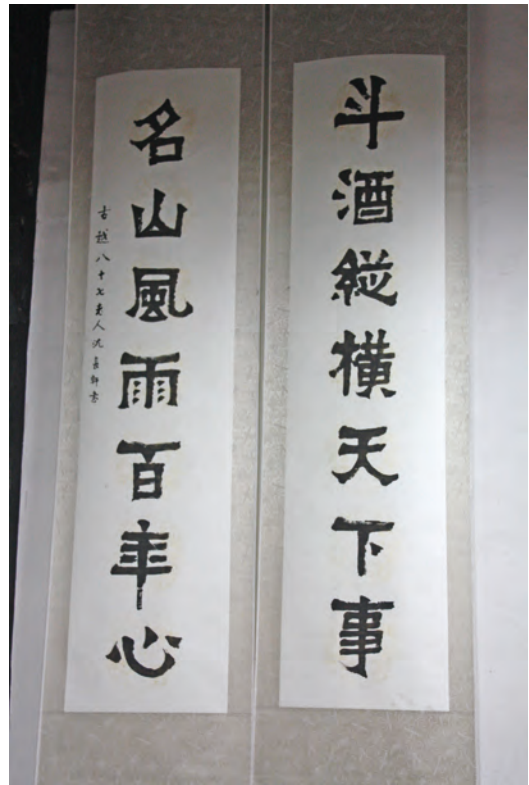 斗酒縱橫天下事
名山風雨百年心
古越八十七叟人沈